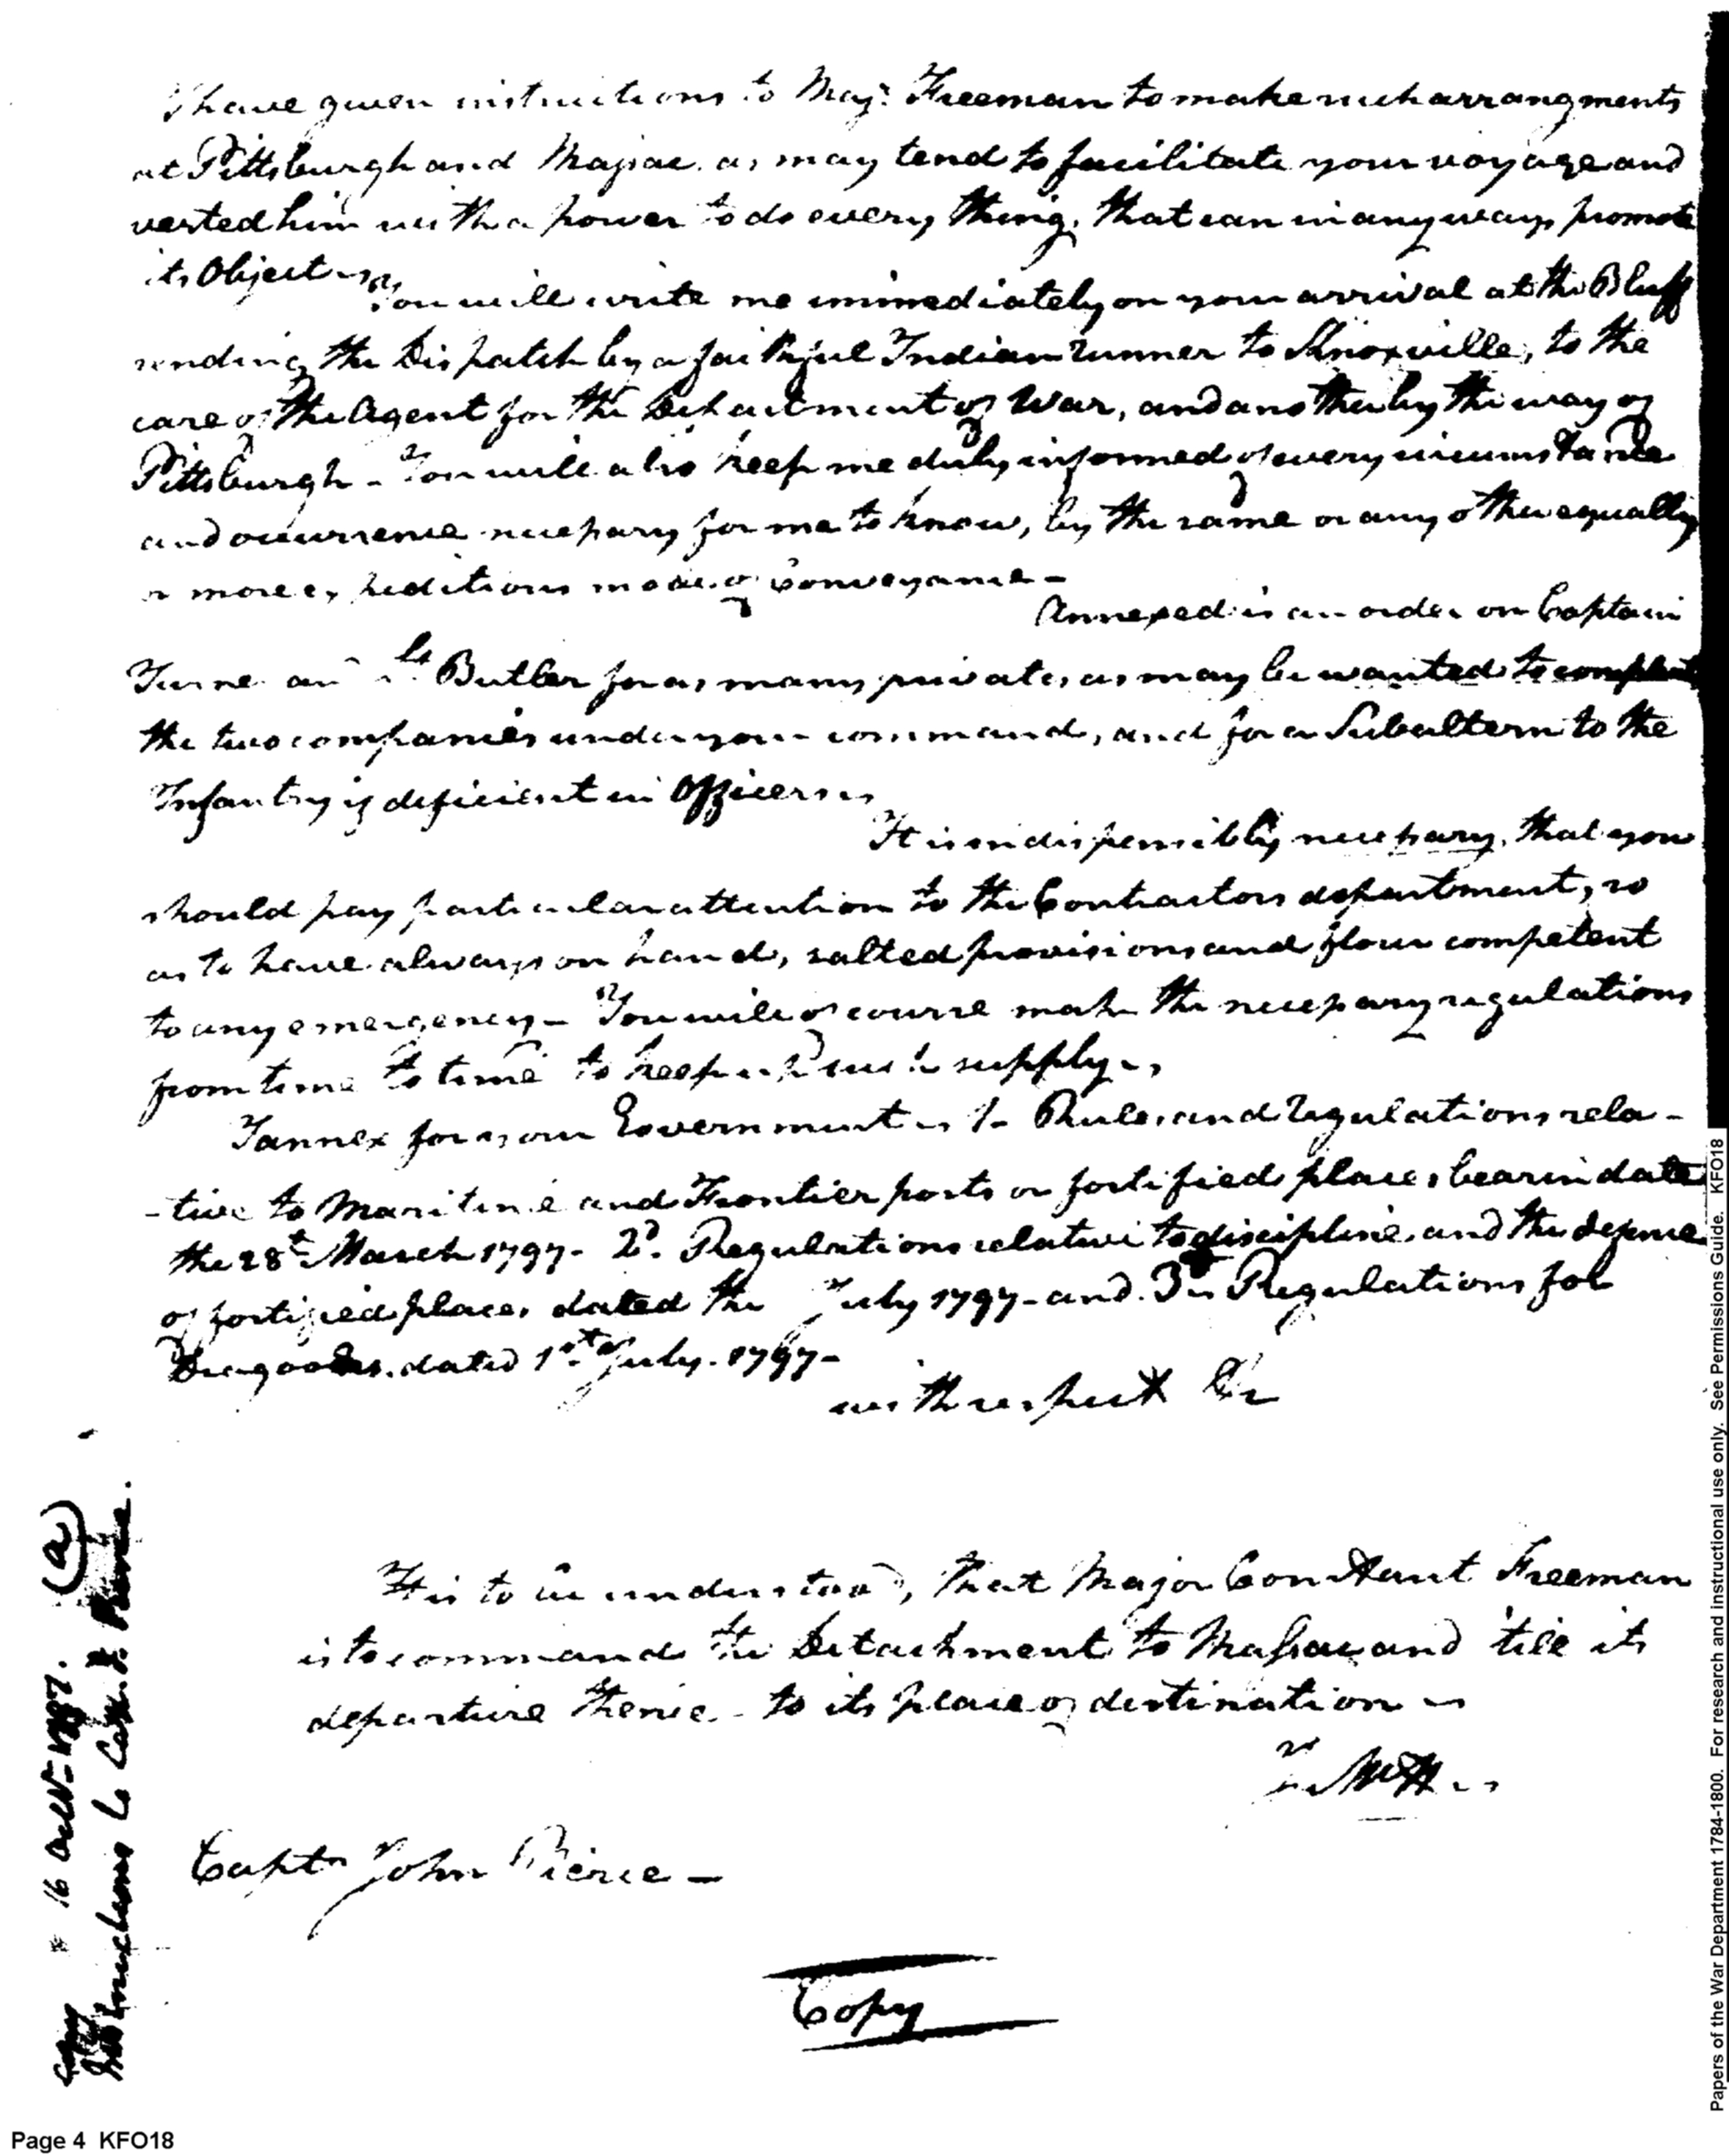 I have given instructions to Maj.r Freeman to make such arrangments
at Pittsburgh and Massac as may tend to facilitate your voyage and
vested him with a power to do every thing, that can in any ways promote
its Object
You will write me immediately on your arrival at the Bluff
sending the Dispatch by a faithful Indian runner to Knoxville, to the
care of the Agent for the Department of War, and another by the way of
Pittsburgh - You will also keep me duly informed of every circumstance
and occurrence necessary for me to know, by the same or any other equally
or more expeditious mode of Conveyance -
Annexed is an order on Captain
Butler for as many privates as may be wanted to complete
the two companies under your command, and for a Subaltern to the
Infantry if deficient in Officers
It is indispensibly necessary, that you
should pay particular attention to the Contractors department, so
as to have always on hand, salted provisions and flour competent
to any emergency - You will of course make the necessary regulations
from time to time to keep up such supply
I annex for your Government 1 Rules and regulations rela-
-tive to Maritime and Frontier posts or fortified places bearin date
the 28th March 1797 - 2d. Regulations relative to discipline and the defence
of fortified places dated the July 1797 - and 3 Regulations for
Dragoons. dated 1st July. 1797 -
with respect &c
It is to be understood, that Major Constant Freeman
is to command the Detachment to Massac and till its
departure thence to its place of destination
McH
Capt.n John Pierce -
Copy
Copy
Instructions to Capt. J. Pierce.
16 Octr 1797. (a)
Page 4 KFO18
Papers of the War Department 1784-1800. For research and instructional use only. See Permissions Guide. KFO18